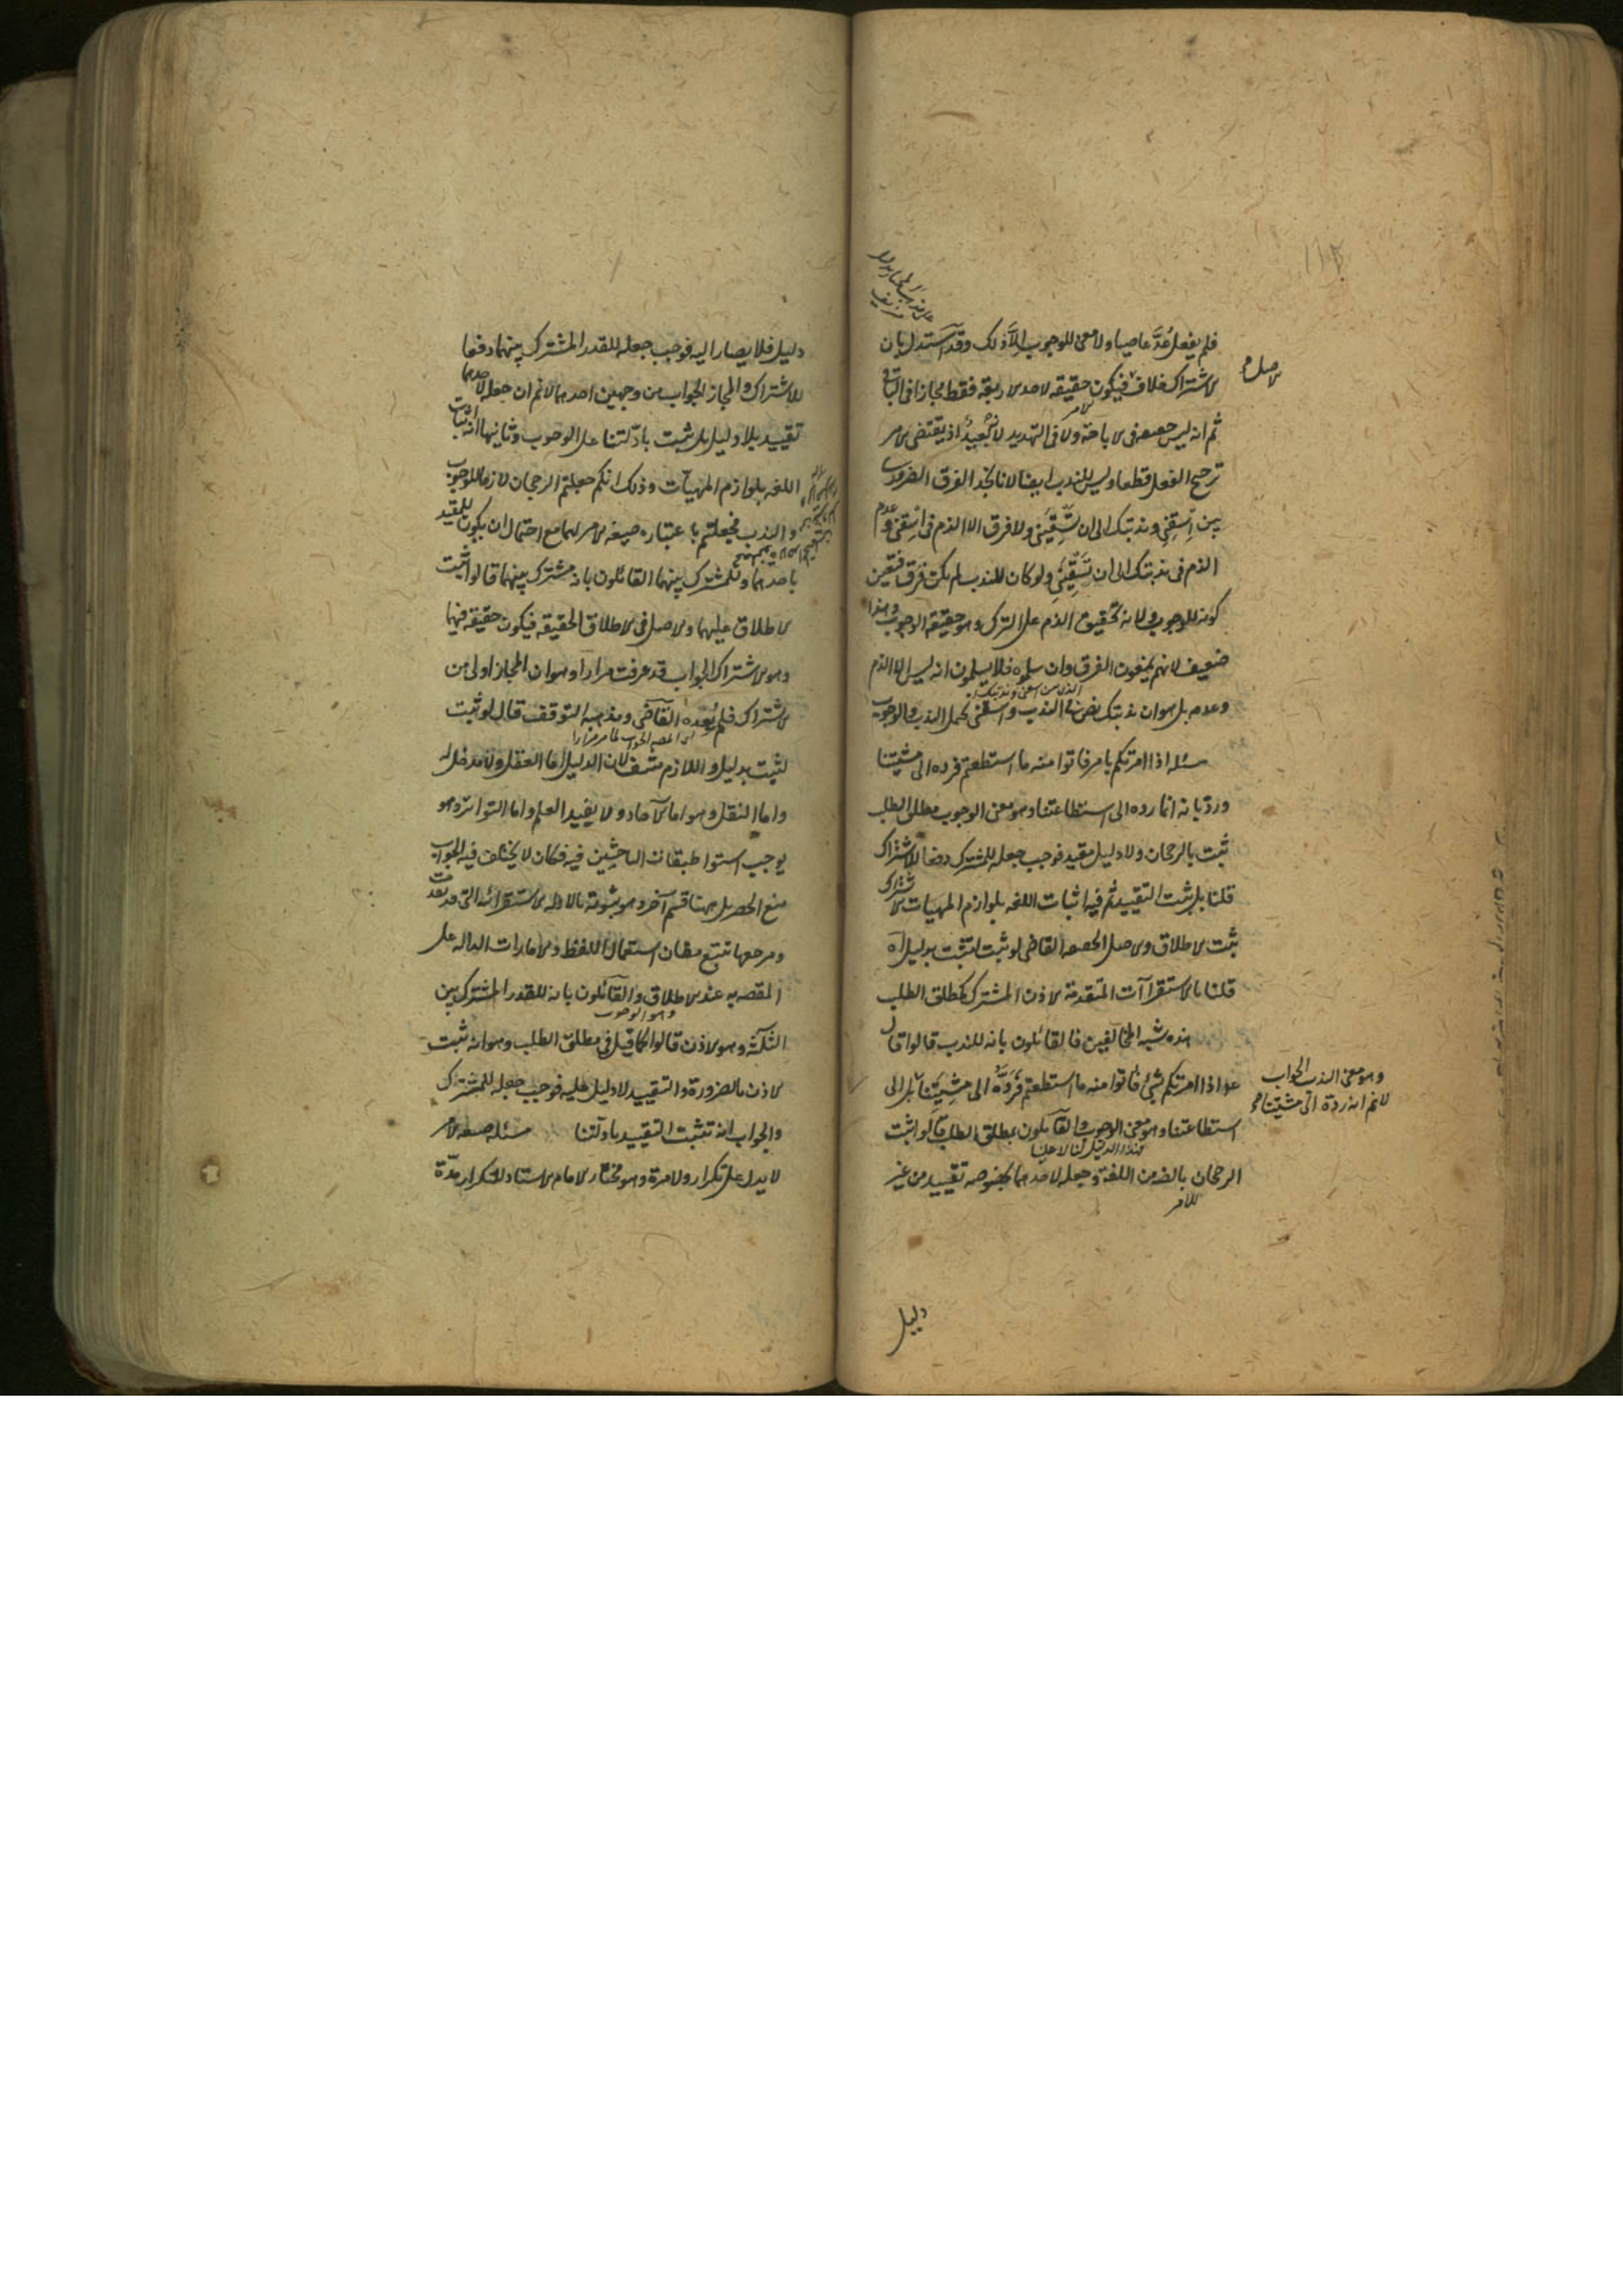 فلم يفعل عُدَّ عاصيا ولا معنى للوجوب إلّا ذلك وقد استدل بان
الاصل
الاشتراك خلاف فيكون حقيقة لاحد الاربعة فقط مجازا في الباقي
ثم انه ليس حقيقة في الاباحة ولا في التهديد لانه بعيد اذ يقتضى الامر
ترجيح الفعل قطعا وليس للندب ايضا لانا نجد الفرق الضرورى
بين اِسقِنى وندبتك الى ان تسقينى ولا فرق الا الذم في اسقنى وعدم
الذم في ندبتك الى ان تسقينى ولو كان للندب لم يكن فرق فتعين
كونه للوجوب ولانه تحقيق الذم على الترك وهو حقيقة الوجوب وهذا
ضعيف لانهم يمنعون الفرق وان سلموه فلا يسلمون انه ليس الا الذم
وعدم بل هو ان ندبتك نص في الندب واسقنى يحتمل الندب والوجوب
مسئله اذا امرتكم بامر فاتوا منه ما استطعتم فرده الى مشيتنا
وردّ بانه انما رده الى استطاعتنا وهو معنى الوجوب مطلق الطلب
ثبت بالرجحان ولا دليل مقيد فوجب جعله للمشترك دفعا للاشتراك
قلنا بل يثبت التقييد ثم فيه اثبات اللغه بلوازم المهيات الاشتراك
ثبت الاطلاق والاصل الحقيقه القاضى لو ثبت لثبت بدليل اه
قلنا بالاستقراآت المتقدمة الاذن المشترك كمطلق الطلب
هذه شبه المخالفين فالقائلون بانه للندب قالوا قال
عم اذا امرتكم بشئ فاتوا منه ما استطعتم فَرَدَّهُ الى مشيتنا بل الى
وهو معنى الندب الجواب
لانم انه رده الى مشيتنا
استطاعتنا وهو معنى الوجوب والقائلون بمطلق الطلب قالوا ثبت
فهذا الدليل لنا لا علينا
الرجحان بالضه من اللغة وجعله لاحدهما بخصوصه تقييد من غير
للامر
دليل
دليل فلا يصار اليه فوجب جعله للقدر المشترك بينهما دفعا
للاشتراك والمجاز الجواب من وجهين احدهما لانم ان جعله لاحدهما
تقييد بلا دليل بل يثبت بادلتنا على الوجوب وثانيهما انه اثبات
اللغه بلوازم المهيات وذلك انكم جعلتم الرجحان لازما للوجوب
والندب فجعلتم باعتباره صيغه الامر لهما مع احتمال ان يكون للمقيد
باحدهما وللمشترك بينهما القائلون بانه مشترك بينهما قالوا ثبت
الاطلاق عليهما والاصل في الاطلاق الحقيقه فيكون حقيقه فيهما
وهو الاشتراك الجواب قد عرفت مرارا وهو ان المجاز اولى من
الاشتراك فلم يُعِده القاضى ومذهبه التوقف قال لو ثبت
لثبت بدليل واللازم منتف لان الدليل اما العقل ولا مدخل له
واما النقل وهو اما الآحاد ولا يفيد العلم واما التواتر وهو
يوجب استوا طبقات الباحثين فيه فكان لا يختلف فيه الجواب
منع الحصر بل ههنا قسم آخر وهو ثبوته بالادله الاستقرائه التى تقدمت
ومرجعها تتبع مظان استعمال اللفظ والامارات الداله على
المقصد به عند الاطلاق والقائلون بانه للقدر المشترك بين
الثلثة وهو الاذن قالوا كما قيل في مطلق الطلب وهو انه ثبت
الاذن بالضرورة والتقييد لا دليل عليه فوجب جعله للمشترك
والجواب انه تثبت التقييد بادلتنا مسئله صيغه الامر
لا يدل على تكرار ولا مرة وهو مختار الامام الاستاد للتكرار مدّة